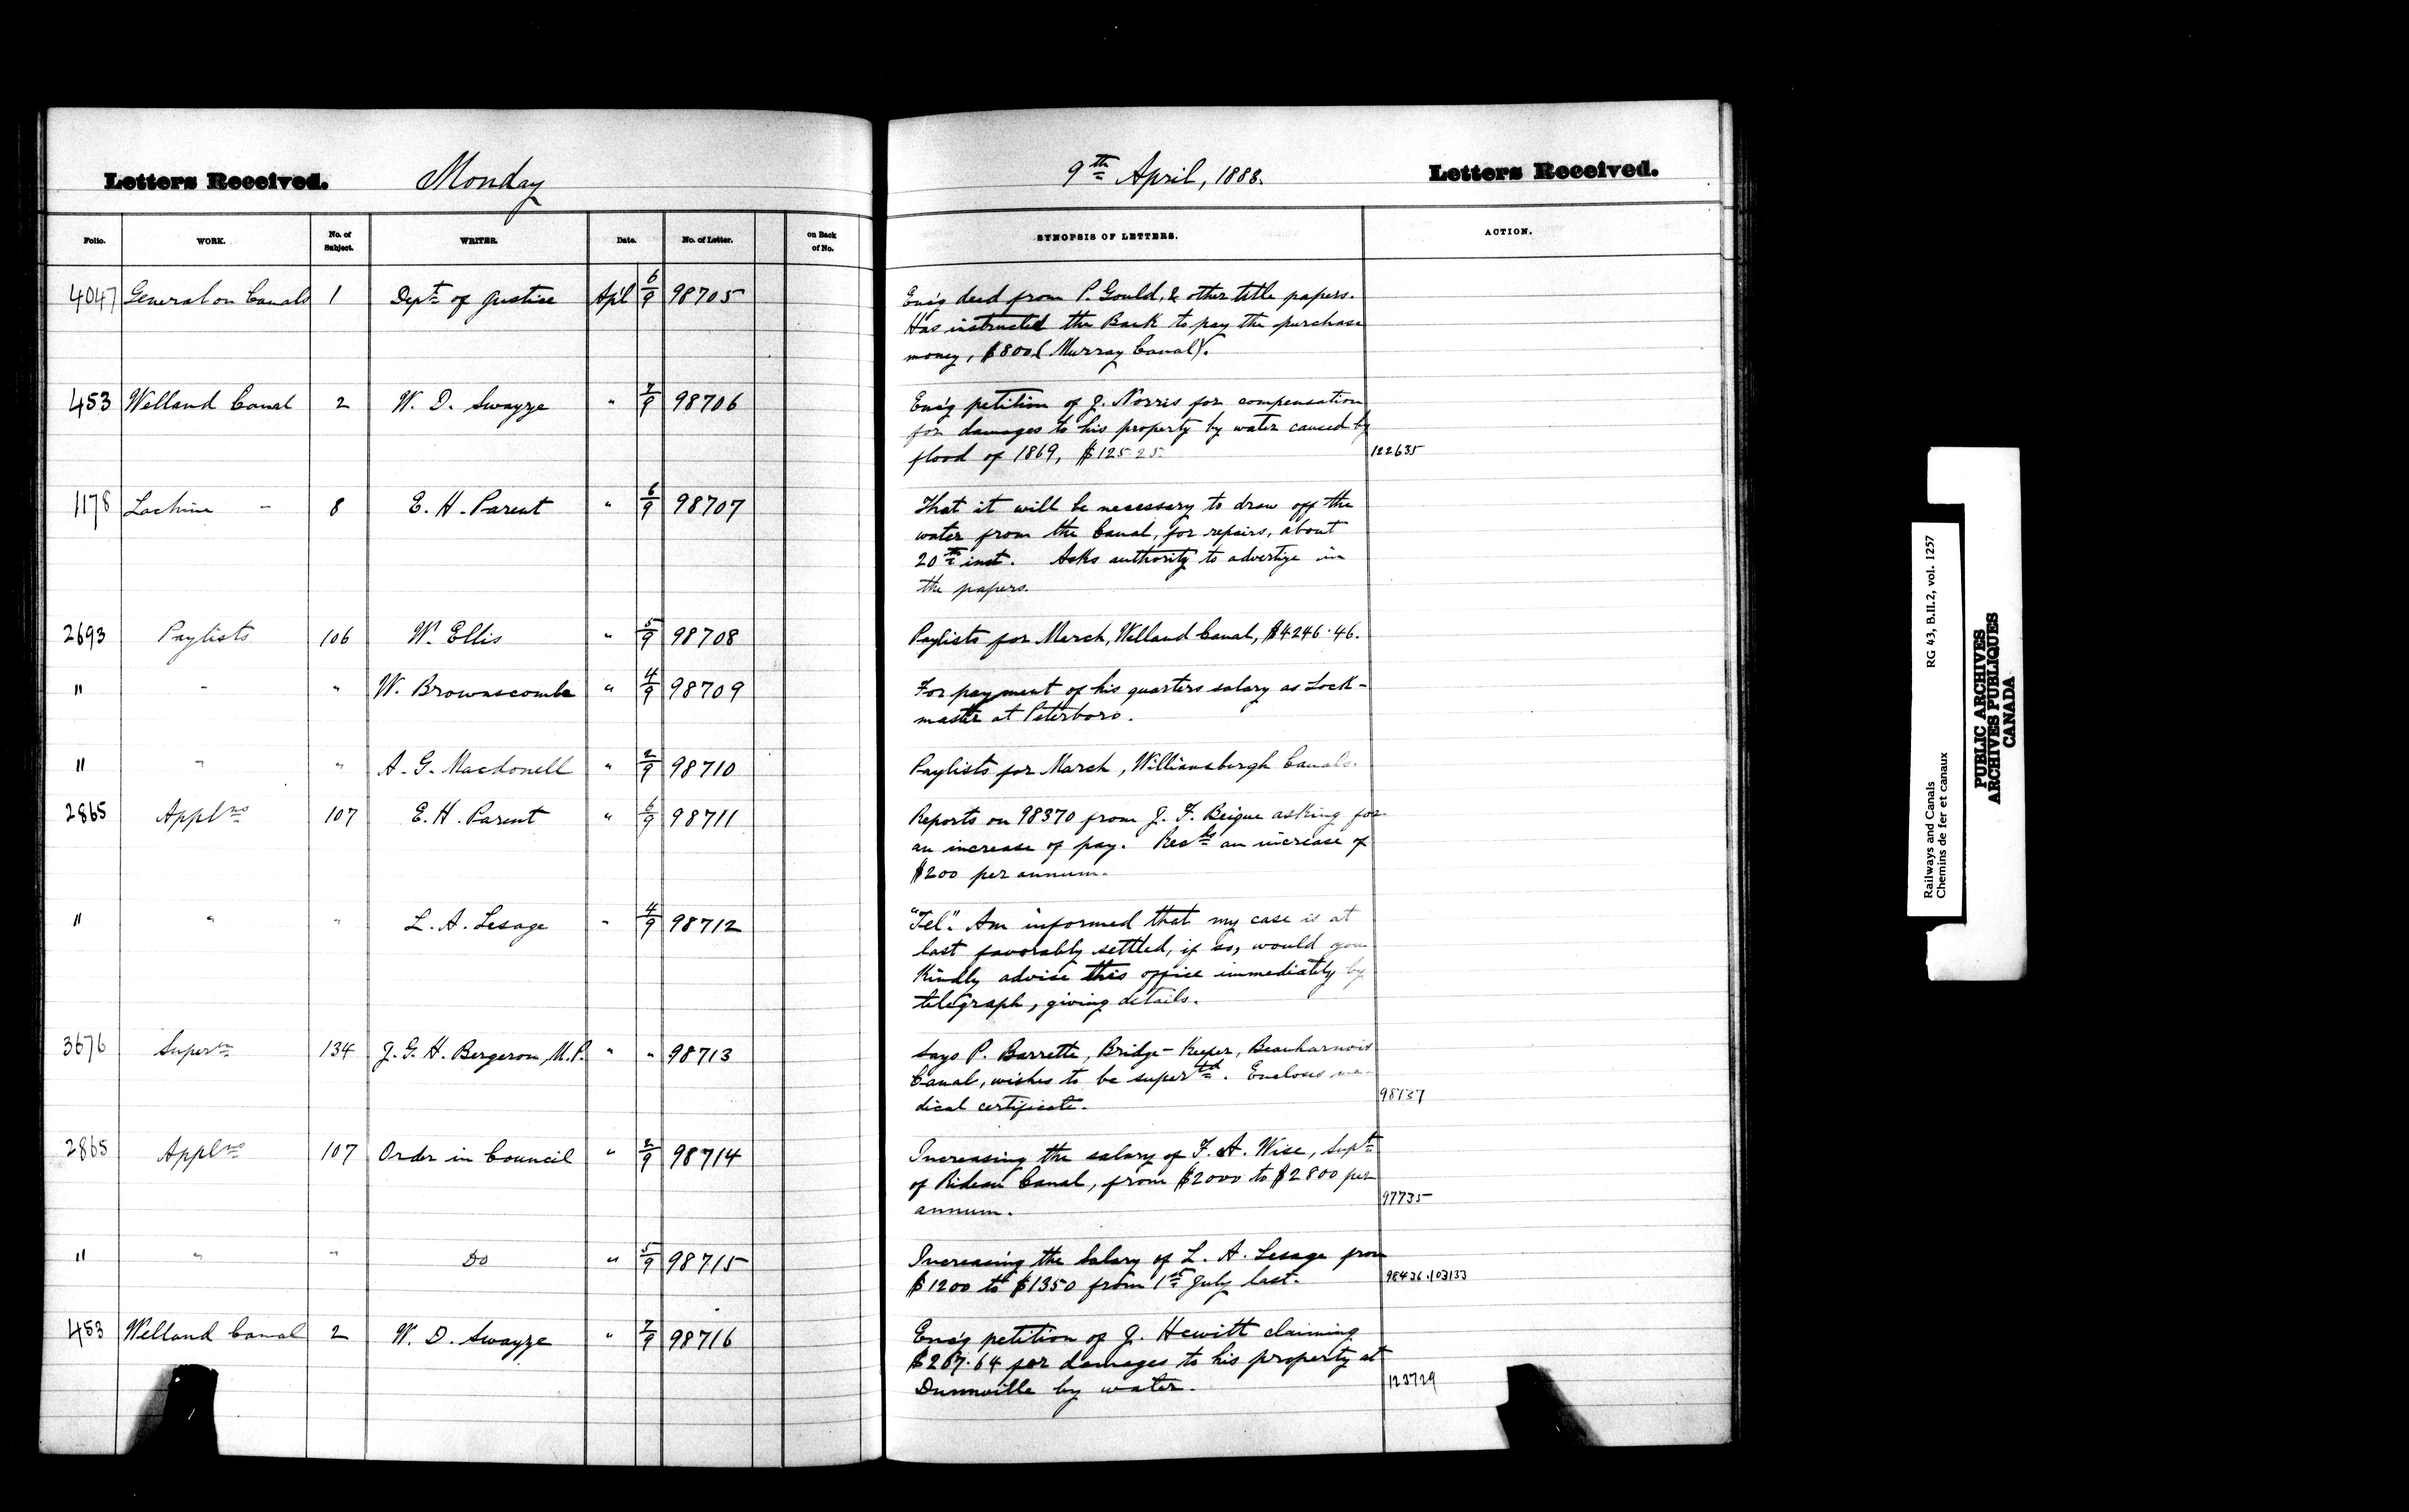 Letters Received. Monday
Folio. WORK. No. of Subject. WRITER. Date. No. of Letter. on Back of No.
4047 General on Canals 1 Dept of Justice Apl 6/9 98705
453 Welland Canal 2 W. D. Swayze " 7/9 98706
1178 Lachine " 8 E. H. Parent " 6/9 98707
2693 Paylists 106 W. Ellis " 5/9 98708
" " " W. Brownscombe " 4/9 98709
" " " A. G. Macdonell " 2/9 98710
2865 Applns 107 E. H. Parent " 6/9 98711
" " " L. A. Lesage " 4/9 98712
3676 Supern 134 J. G. H. Bergeron, M.P. " " 98713
2865 Applns 107 Order in Council " 2/9 98714
" " " Do " 5/9 98715
453 Welland Canal 2 W. D. Swayze " 7/9 98716
9th April, 1888. Letters Received.
SYNOPSIS OF LETTERS. ACTION.
Enc'g deed from P. Gould, & other title papers.
Has instructed the Bank to pay the purchase
money, $800 (Murray Canal).
Enc'g petition of J. Norris for compensation
for damages to his property by water caused by
flood of 1869, $125.25 122635
That it will be necessary to draw off the
water from the Canal, for repairs, about
20th inst. Asks authority to advertize in
the papers.
Paylists for March, Welland Canal, $4246.46.
For payment of his quarters salary as Lock-
master at Peterboro.
Paylists for March, Williamsburgh Canals.
Reports on 98370 from J. F. Beique asking for
an increase of pay. Recds an increase of
$200 per annum.
"Tel". Am informed that my case is at
last favorably settled, if so, would you
kindly advise this office immediately by
telegraph, giving details.
Says P. Barrette, Bridge-Keeper, Beauharnois
Canal, wishes to be supertd. Encloses me-
dical certificate. 98737
Increasing the salary of F. A. Wise, Supt
of Rideau Canal, from $2000 to $2800 per
annum. 97735
Increasing the salary of L. A. Lesage from
$1200 to $1350 from 1st July last. 98436.103133
Enc'g petition of J. Hewitt claiming
$267.64 for damages to his property at
Dunnville by water. 123729
Railways and Canals RG 43, B.II.2, vol. 1257
Chemins de fer et canaux
PUBLIC ARCHIVES
ARCHIVES PUBLIQUES
CANADA